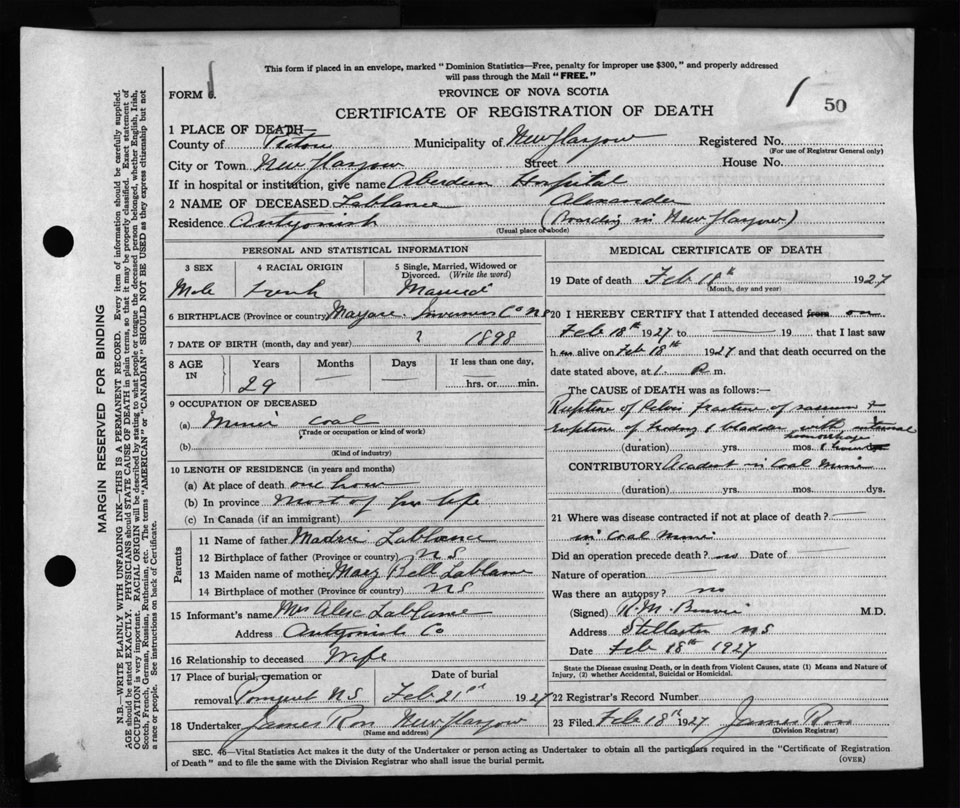 This form if placed in an envelope, marked "Dominion Statistics—Free, penalty for improper use $300," and properly addressed
will pass through the Mail "FREE."
FORM 6.
PROVINCE OF NOVA SCOTIA
50
CERTIFICATE OF REGISTRATION OF DEATH
1 PLACE OF DEATH—
County of Pictou Municipality of New Glasgow Registered No.
(For use of Registrar General only)
City or Town New Glasgow Street House No.
If in hospital or institution, give name Aberdeen Hospital
2 NAME OF DECEASED Lablance Alexander
Residence Antigonish (Boarding in New Glasgow)
(Usual place of abode)
PERSONAL AND STATISTICAL INFORMATION
3 SEX 4 RACIAL ORIGIN 5 Single, Married, Widowed or Divorced. (Write the word)
Male French Married
6 BIRTHPLACE (Province or country) Inverness Co NS
7 DATE OF BIRTH (month, day and year) ? 1898
8 AGE IN Years Months Days If less than one day,
29 — — hrs. or min.
9 OCCUPATION OF DECEASED
(a) Miner Coal
(Trade or occupation or kind of work)
(b)
(Kind of industry)
10 LENGTH OF RESIDENCE (in years and months)
(a) At place of death one hour
(b) In province Most of his life
(c) In Canada (if an immigrant)
Parents
11 Name of father Lablance
12 Birthplace of father (Province or country) NS
13 Maiden name of mother Mary Bell Lablanc
14 Birthplace of mother (Province or country) NS
15 Informant's name Mrs Alex Lablance
Address Antigonish Co
16 Relationship to deceased Wife
17 Place of burial, cremation or removal Date of burial
Pomquet NS Feb 21st 1927
18 Undertaker James Ross New Glasgow
(Name and address)
MEDICAL CERTIFICATE OF DEATH
19 Date of death Feb 18th 1927
(Month, day and year)
20 I HEREBY CERTIFY that I attended deceased from on
Feb 18th 1927 to — 19 that I last saw
him alive on Feb 18th 1927 and that death occurred on the
date stated above, at 1. P. m.
The CAUSE of DEATH was as follows:—
Rupture of Pelvis fracture of sacrum &
rupture of & bladder with internal
hemorrhage
(duration) yrs. mos. dys.
CONTRIBUTORY Accident in Coal Mine
(duration) yrs. mos. dys.
21 Where was disease contracted if not at place of death? —
in Coal Mine
Did an operation precede death? no Date of —
Nature of operation —
Was there an autopsy? no
(Signed) M.D.
Address Stellarton NS
Date Feb 18th 1927
State the Disease causing Death, or in death from Violent Causes, state (1) Means and Nature of
Injury, (2) whether Accidental, Suicidal or Homicidal.
22 Registrar's Record Number
23 Filed Feb 18th 1927 James Ross
(Division Registrar)
SEC. 46—Vital Statistics Act makes it the duty of the Undertaker or person acting as Undertaker to obtain all the particulars required in the "Certificate of Registration
of Death" and to file the same with the Division Registrar who shall issue the burial permit.
(OVER)
MARGIN RESERVED FOR BINDING
N.B.—WRITE PLAINLY WITH UNFADING INK—THIS IS A PERMANENT RECORD. Every item of information should be carefully supplied.
AGE should be stated EXACTLY. PHYSICIANS should STATE CAUSE OF DEATH in plain terms, so that it may be properly classified. Exact statement of
OCCUPATION is very important. RACIAL ORIGIN will be described by stating to what people or tongue the deceased person belonged, whether English, Irish,
Scotch, French, German, Russian, Ruthenian, etc. The terms "AMERICAN" or "CANADIAN" SHOULD NOT BE USED as they express citizenship but not
a race or people. See instructions on back of Certificate.